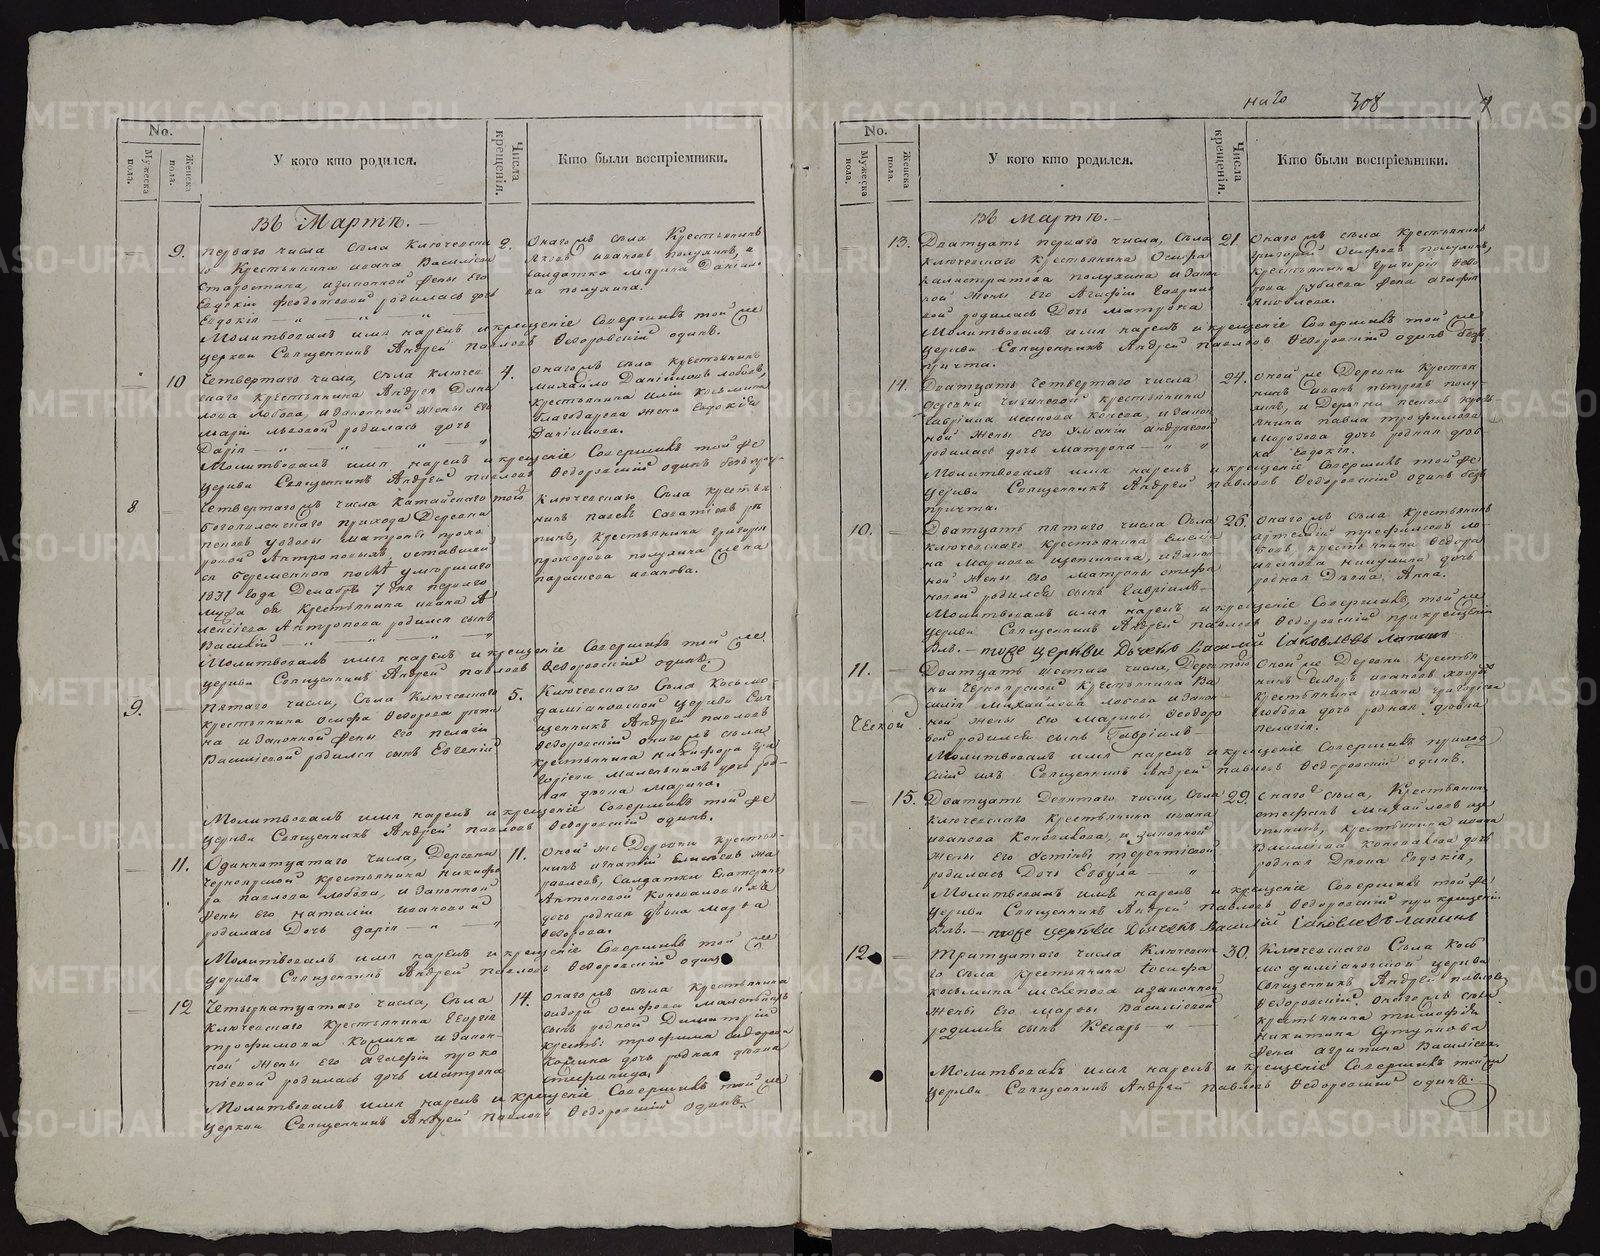 No.
Мужеска пола.
Женска пола.
У кого кто родился.
Числа крещенія.
Кто были воспріемники.
Въ Мартѣ.
9.
перваго числа села Ключевска
го Крестьянина ивана Василіева
Старостина, изаконной жены Его
Евдокіи Феодотовой родилась дочь
Евдокія
2.
Онагожъ села Крестьянинъ
Яковъ ивановъ полухинъ, и
солдатка Марина Даніило
ва полухина.
Молитвовалъ имя нарекъ и крещеніе Совершилъ той же
церкви Священникъ Андрей павловъ Ѳедоровскій одинъ.
10
Четвертаго числа, села ключев
скаго крестьянина Андрея Дани
лова Лобова, изаконной жены Его
родилась дочь
Дарія
4.
онагожъ села крестьянинъ
Михайло Даніиловъ лобовъ,
крестьянина иліи косьмина
благодарева жена Евдокія
Даніилова.
Молитвовалъ имя нарекъ и крещеніе Совершилъ той же
церкви Священникъ Андрей павловъ Ѳедоровскій одинъ
8
Четвертагожъ числа катайскаго
богоявленскаго прихода Деревни
вдовы матроны прохо
ровой Антроповыхъ, оставшей
ся беременною послѣ умершаго
1831 года Декабря 7 дня перваго
мужа ея крестьянина ивана А
лексіева Антропова родился сынъ
Василій
Ключевскаго села крестья
нинъ
крестьянина григорія
прохорова полухина жена
параскева иванова.
Молитвовалъ имя нарекъ и крещеніе Совершилъ той же
церкви Священникъ Андрей павловъ Ѳедоровскій одинъ.
9.
пятаго числа, села Ключевскаго
крестьянина осифа Ѳедорова
на изаконной жены Его пелагіи
Василіевой родился сынъ Евгеній
5.
Ключевскаго села косьмо
даміановской церкви Свя
щенникъ Андрей павловъ
Ѳедоровскій онагожъ села
крестьянина никифора гри
горіева маленькихъ дочь род
ная дѣвка Марина.
Молитвовалъ имя нарекъ и крещеніе Совершилъ той же
церкви Священникъ Андрей павловъ Ѳедоровскій одинъ.
11.
Одиннатцатаго числа, Деревни
Черноярской крестьянина никифо
ра павлова лобова, изаконной
жены его наталіи ивановой
родилась Дочь дарія
11.
Оной же Деревни крестья
нинъ игнатій
солдатки Екатерины
Антоновой Коноваловыхъ
дочь родная дѣвка марѳа
Ѳедорова.
Молитвовалъ имя нарекъ и крещеніе Совершилъ той же
церкви Священникъ Андрей павловъ Ѳедоровскій одинъ
12
Четырнатцатаго числа, села
Ключевскаго крестьянина Георгія
трофимова Комина изакон
ной жены его агафіи проко
піевой родилась дочь матрона
14.
онагожъ села крестьянина
осифова маленькихъ
сынъ родной Димитрій
крестья: трофима
Комина дочь родная дѣвка
стефанида.
Молитвовалъ имя нарекъ и крещеніе Совершилъ той же
церкви Священникъ Андрей павловъ Ѳедоровскій одинъ.
308
No.
Мужеска пола.
Женска пола.
У кого кто родился.
Числа крещенія.
Кто были воспріемники.
Въ Мартѣ.
13.
Дватцать перваго числа, села
ключевскаго крестьянина Осифа
калистратова полухина изакон
ной жены Его Агафіи Гаврило
вой родилась Дочь матрона
21
Онагожъ села крестьянинъ
григорій Осифовъ полухинъ,
крестьянина григорія
жена агафія
Яковлева.
Молитвовалъ имя нарекъ и крещеніе Совершилъ той же
церкви Священникъ Андрей павловъ Ѳедоровскій одинъ безъ
причта.
14.
Дватцать Четвертаго числа
деревни крестьянина
Гавріила изакон
ной жены его андреевой
родилась дочь матрона
24.
Оной же Деревни крестья
нинъ иванъ петровъ полу
хинъ, и Деревни кресть
янина павла трофимова
морозова дочь родная дѣв
ка Евдокія.
Молитвовалъ имя нарекъ и крещеніе Совершилъ той же
церкви Священникъ Андрей павловъ Ѳедоровскій одинъ безъ
причта.
10.
Дватцать пятаго числа села
ключевскаго крестьянина
на изакон
ной жены его Матроны
родился сынъ Гавріилъ
26.
онагожъ села крестьянинъ
трофимовъ ло
бовъ, крестьянина Ѳедора
иванова дочь
родная Дѣвка, Анна.
Молитвовалъ имя нарекъ и крещеніе Совершилъ той же
церкви Священникъ Андрей павловъ Ѳедоровскій при крещеніи
былъ. - тоѣже церкви Дьячекъ Василій Іаковлевъ Лапинъ
11.
Дватцать шестаго числа, Дерев
ни Черноярской крестьянина Ва
силія Михайлова лобова изакон
ной жены его Марины Ѳеодоро
вой родился сынъ Гавріилъ
Оной же Деревни крестья
нинъ ивановъ
крестьянина ивана григорьева
лобова дочь родная дѣвка
пелагія.
Молитвовалъ имя нарекъ и крещеніе Совершилъ приход
скій ихъ Священникъ Андрей павловъ Ѳедоровскій одинъ.
15.
Дватцать Девятаго числа, села
ключевскаго крестьянина ивана
иванова Коновалова, и законной
жены Его терентіевой
родилась Дочь Еввула
29.
онаго села, Крестьянинъ
стефанъ Михайловъ
крестьянина ивана
Василіева коновалова дочь
родная Дѣвка Евдокія,
Молитвовалъ имя нарекъ и крещеніе Совершилъ той же
церкви Священникъ Андрей павловъ Ѳедоровскій при крещеніи
былъ. - тоѣже церкви Дьячекъ Василій Іаковлевъ Лапинъ
12.
Тритцатаго числа Ключевска
го села крестьянина Іосифа
косьмина изаконной
жены Его Василіевой
родился сынъ Кесарь
30.
Ключевскаго села Кось
мо даміановской церкви
Священникъ Андрей павловъ
Ѳедоровскій. онагожъ села
крестьянина тимофія
никитина
жена агрипина Василіева.
Молитвовалъ имя нарекъ и крещеніе Совершилъ той же
церкви Священникъ Андрей павловъ Ѳедоровскій одинъ.
METRIKI.GASO-URAL.RU